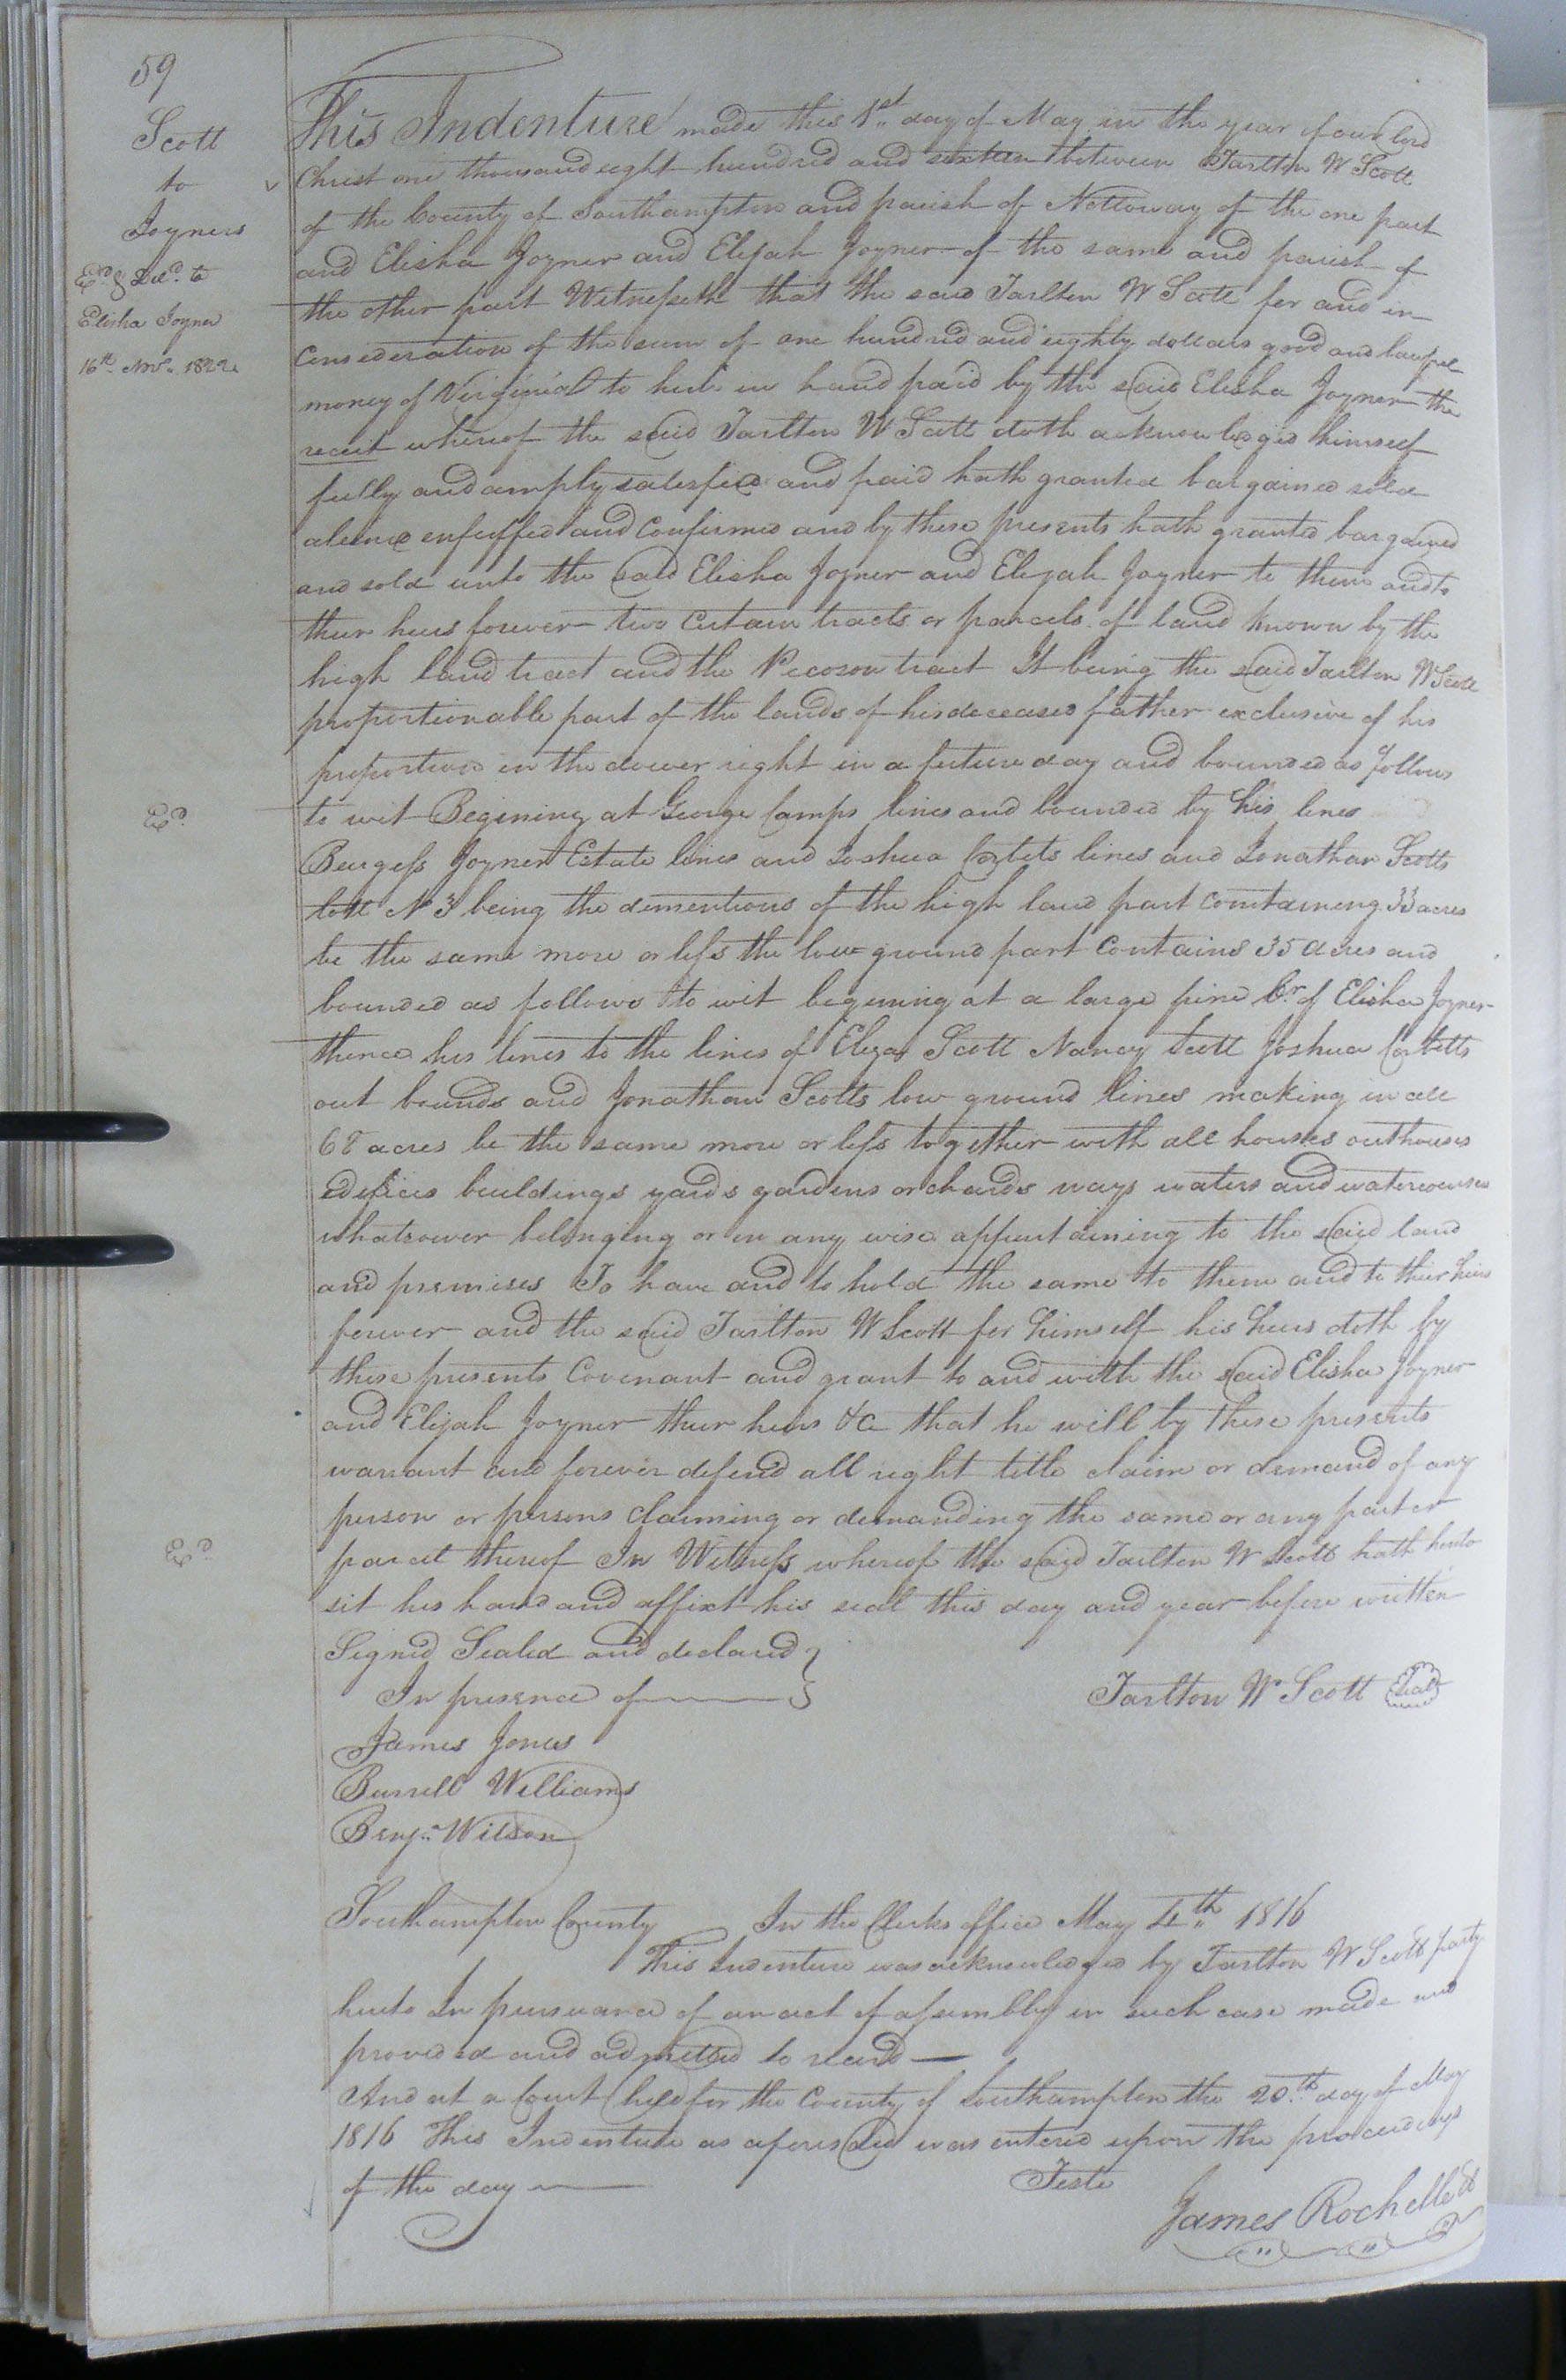 59
Scott
to
Joyners
Exd. & Deld. to
Elisha Joyner
16th. Novr. 1822
This Indenture made this 1st. day of May in the year of our lord
Christ one thousand eight hundred and sixteen between Tarlton W Scott
of the County of Southampton and parish of Nottoway of the one part
and Elisha Joyner and Elijah Joyner of the same and parish of
the other part Witnesseth that the said Tarlton W Scott for and in
Consideration of the sum of one hundred and eighty dollars good and lawful
money of Virginia to him in hand paid by the said Elisha Joyner the
receit whereof the said Tarlton W Scott doth acknowledged himself
fully and amply satisfied and paid hath granted bargained sold
aliened enfeffed and Confirmed and by these presents hath granted bargained
and sold unto the said Elisha Joyner and Elijah Joyner to them and to
their heirs forever two Certain tracts or parcels of land known by the
high land tract and the Pecoson tract It being the said Tarlton W Scott
proportionable part of the lands of his deceased father exclusive of his
proportion in the dower right in a future day and bounded as follows
to wit Begining at George Camps lines and bounded by his lines
Exd.
Burgess Joyner Estate lines and Joshua Corbits lines and Jonathan Scotts
lott No 3 being the dimentions of the high land part Containing 33 acres
be the same more or less the low ground part Contains 35 acres and
bounded as follows to wit begining at a large pine Cr. of Elisha Joyner
thence his lines to the lines of Eliza Scott Nancy Scott Joshua Corbetts
out bounds and Jonathan Scotts low ground lines making in all
68 acres be the same more or less together with all houses outhouses
edifices buildings yards gardens orchards ways waters and watercourses
whatsoever belonging or in any wise appurtaining to the said land
and premises To have and to hold the same to them and to their heirs
forever and the said Tarlton W Scott for himself his heirs doth by
these presents Covenant and grant to and with the said Elisha Joyner
and Elijah Joyner their heirs &c that he will by these presents
warrant and forever defend all right title claim or demand of any
person or persons claiming or demanding the same or any part or
parcel thereof In Witness whereof the said Tarlton W Scott hath hereto
Exd.
set his hand and affixt his seal this day and year before written
Signed Sealed and declared }
In presence of
Tarlton W Scott Seal
James Jones
Burrell Williams
Benja. Wilson
Southampton County In the Clerks office May 4th. 1816
This Indenture was acknowledged by Tarlton W Scott party
hereto In pursuance of an act of assembly in such case made and
provided and admitted to record —
And at a Court held for the County of Southampton the 20.th day of May
1816 This Indenture as aforesaid was entered upon the proceedings
of the day
Teste
James Rochelle